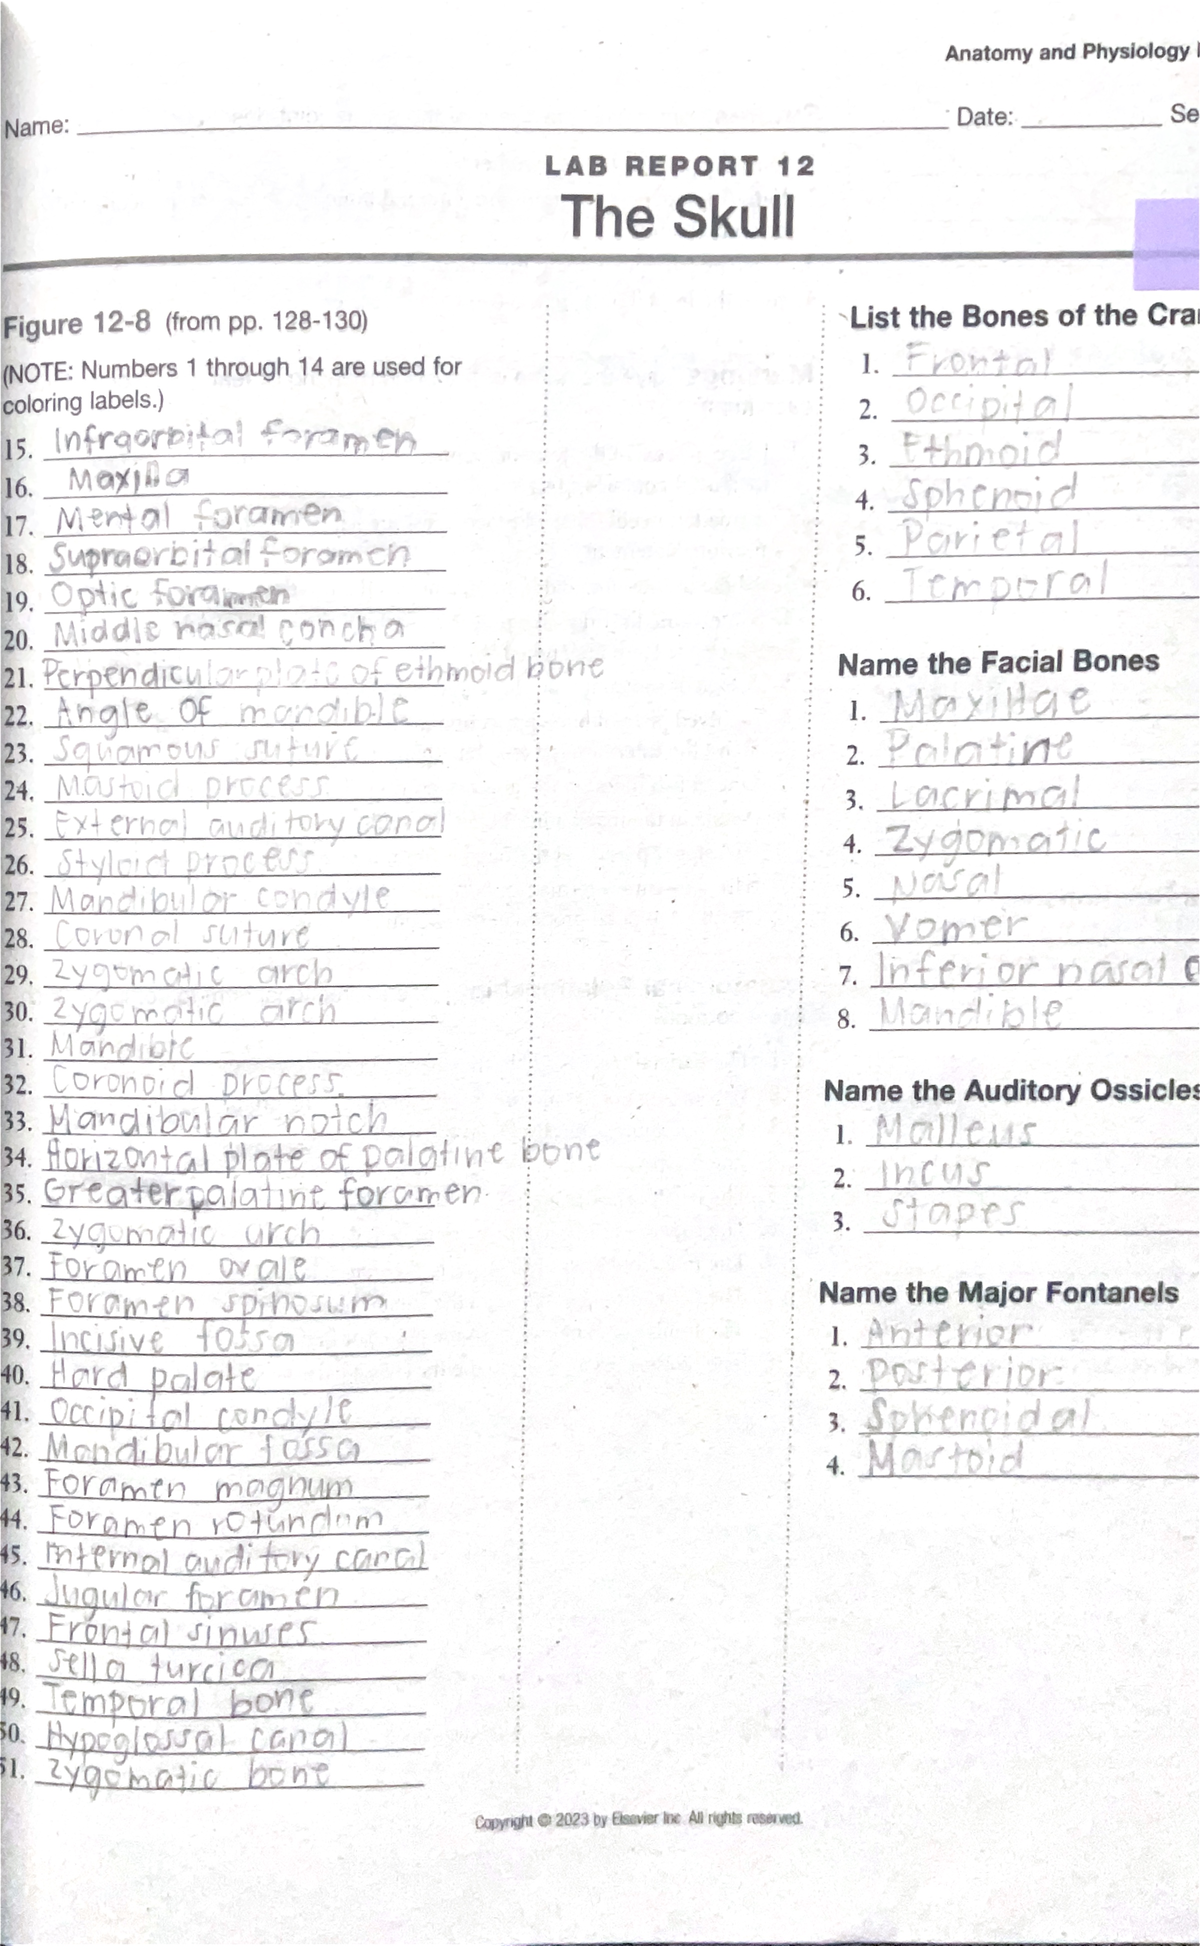 Anatomy and Physiology
Name: Date: Se
LAB REPORT 12
The Skull
Figure 12-8 (from pp. 128-130)
(NOTE: Numbers 1 through 14 are used for
coloring labels.)
15. Infraorbital foramen
16. Maxilla
17. Mental foramen
18. Supraorbital foramen
19. Optic foramen
20. Middle nasal concha
21. Perpendicular plate of ethmoid bone
22. Angle of mandible
23. Squamous suture
24. Mastoid process
25. External auditory canal
26. Styloid process
27. Mandibular condyle
28. Coronal suture
29. Zygomatic arch
30. Zygomatic arch
31. Mandible
32. Coronoid process.
33. Mandibular notch
34. Horizontal plate of palatine bone
35. Greater palatine foramen
36. Zygomatic arch
37. Foramen ovale
38. Foramen spinosum
39. Incisive fossa
40. Hard palate
41. Occipital condyle
42. Mandibular fossa
43. Foramen magnum
44. Foramen rotundum
45. Internal auditory canal
46. Jugular foramen
47. Frontal sinuses
48. Sella turcica
49. Temporal bone
50. Hypoglossal canal
51. Zygomatic bone
List the Bones of the Cra
1. Frontal
2. Occipital
3. Ethmoid
4. Sphenoid
5. Parietal
6. Temporal
Name the Facial Bones
1. Maxillae
2. Palatine
3. Lacrimal
4. Zygomatic
5. Nasal
6. Vomer
7. Inferior nasal c
8. Mandible
Name the Auditory Ossicles
1. Malleus
2. Incus
3. Stapes
Name the Major Fontanels
1. Anterior
2. Posterior
3. Sphenoidal
4. Mastoid
Copyright © 2023 by Elsevier Inc. All rights reserved.